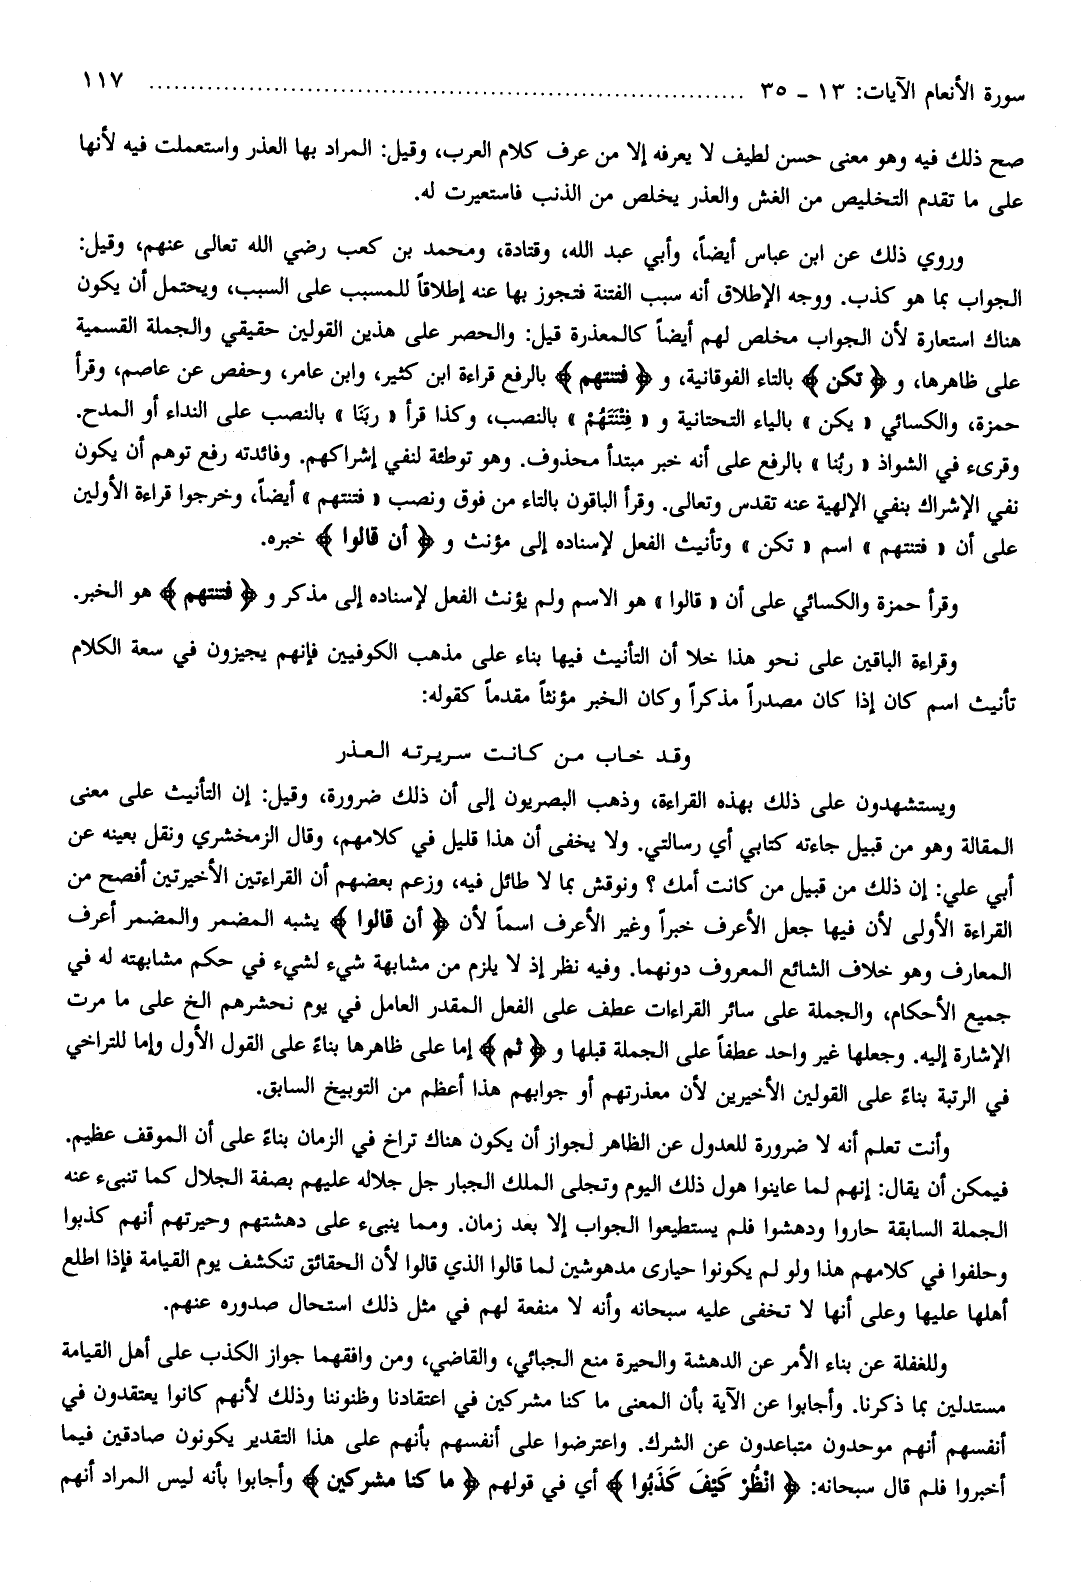 سورة الأنعام الآيات: ١٣ ـ ٣٥ ................................................................ ١١٧
صح ذلك فيه وهو معنى حسن لطيف لا يعرفه إلا من عرف كلام العرب، وقيل: المراد بها العذر واستعملت فيه لأنها
على ما تقدم التخليص من الغش والعذر يخلص من الذنب فاستعيرت له.
وروي ذلك عن ابن عباس أيضاً، وأبي عبد الله، وقتادة، ومحمد بن كعب رضي الله تعالى عنهم، وقيل:
الجواب بما هو كذب. ووجه الإطلاق أنه سبب الفتنة فتجوز بها عنه إطلاقاً للمسبب على السبب، ويحتمل أن يكون
هناك استعارة لأن الجواب مخلص لهم أيضاً كالمعذرة قيل: والحصر على هذين القولين حقيقي والجملة القسمية
على ظاهرها، و ﴿ تكن ﴾ بالتاء الفوقانية، و ﴿ فتنتهم ﴾ بالرفع قراءة ابن كثير، وابن عامر، وحفص عن عاصم، وقرأ
حمزة، والكسائي « يكن » بالياء التحتانية و « فِتْنَتَهُمْ » بالنصب، وكذا قرأ « ربَنَا » بالنصب على النداء أو المدح.
وقرىء في الشواذ « ربُنا » بالرفع على أنه خبر مبتدأ محذوف. وهو توطئة لنفي إشراكهم. وفائدته رفع توهم أن يكون
نفي الإشراك بنفي الإلهية عنه تقدس وتعالى. وقرأ الباقون بالتاء من فوق ونصب « فتنتهم » أيضاً، وخرجوا قراءة الأولين
على أن « فتنتهم » اسم « تكن » وتأنيث الفعل لإسناده إلى مؤنث و ﴿ أن قالوا ﴾ خبره.
وقرأ حمزة والكسائي على أن « قالوا » هو الاسم ولم يؤنث الفعل لإسناده إلى مذكر و ﴿ فتنتهم ﴾ هو الخبر.
وقراءة الباقين على نحو هذا خلا أن التأنيث فيها بناء على مذهب الكوفيين فإنهم يجيزون في سعة الكلام
تأنيث اسم كان إذا كان مصدراً مذكراً وكان الخبر مؤنثاً مقدماً كقوله:
وقد خاب من كانت سريرته العذر
ويستشهدون على ذلك بهذه القراءة، وذهب البصريون إلى أن ذلك ضرورة، وقيل: إن التأنيث على معنى
المقالة وهو من قبيل جاءته كتابي أي رسالتي. ولا يخفى أن هذا قليل في كلامهم، وقال الزمخشري ونقل بعينه عن
أبي علي: إن ذلك من قبيل من كانت أمك ؟ ونوقش بما لا طائل فيه، وزعم بعضهم أن القراءتين الأخيرتين أفصح من
القراءة الأولى لأن فيها جعل الأعرف خبراً وغير الأعرف اسماً لأن ﴿ أن قالوا ﴾ يشبه المضمر والمضمر أعرف
المعارف وهو خلاف الشائع المعروف دونهما. وفيه نظر إذ لا يلزم من مشابهة شيء لشيء في حكم مشابهته له في
جميع الأحكام، والجملة على سائر القراءات عطف على الفعل المقدر العامل في يوم نحشرهم الخ على ما مرت
الإشارة إليه. وجعلها غير واحد عطفاً على الجملة قبلها و ﴿ ثم ﴾ إما على ظاهرها بناءً على القول الأول وإما للتراخي
في الرتبة بناءً على القولين الأخيرين لأن معذرتهم أو جوابهم هذا أعظم من التوبيخ السابق.
وأنت تعلم أنه لا ضرورة للعدول عن الظاهر لجواز أن يكون هناك تراخ في الزمان بناءً على أن الموقف عظيم.
فيمكن أن يقال: إنهم لما عاينوا هول ذلك اليوم وتجلى الملك الجبار جل جلاله عليهم بصفة الجلال كما تنبىء عنه
الجملة السابقة حاروا ودهشوا فلم يستطيعوا الجواب إلا بعد زمان. ومما ينبىء على دهشتهم وحيرتهم أنهم كذبوا
وحلفوا في كلامهم هذا ولو لم يكونوا حيارى مدهوشين لما قالوا الذي قالوا لأن الحقائق تنكشف يوم القيامة فإذا اطلع
أهلها عليها وعلى أنها لا تخفى عليه سبحانه وأنه لا منفعة لهم في مثل ذلك استحال صدوره عنهم.
وللغفلة عن بناء الأمر عن الدهشة والحيرة منع الجبائي، والقاضي، ومن وافقهما جواز الكذب على أهل القيامة
مستدلين بما ذكرنا. وأجابوا عن الآية بأن المعنى ما كنا مشركين في اعتقادنا وظنوننا وذلك لأنهم كانوا يعتقدون في
أنفسهم أنهم موحدون متباعدون عن الشرك. واعترضوا على أنفسهم بأنهم على هذا التقدير يكونون صادقين فيما
أخبروا فلم قال سبحانه: ﴿ انْظُرْ كَيْفَ كَذَبُوا ﴾ أي في قولهم ﴿ ما كنا مشركين ﴾ وأجابوا بأنه ليس المراد أنهم